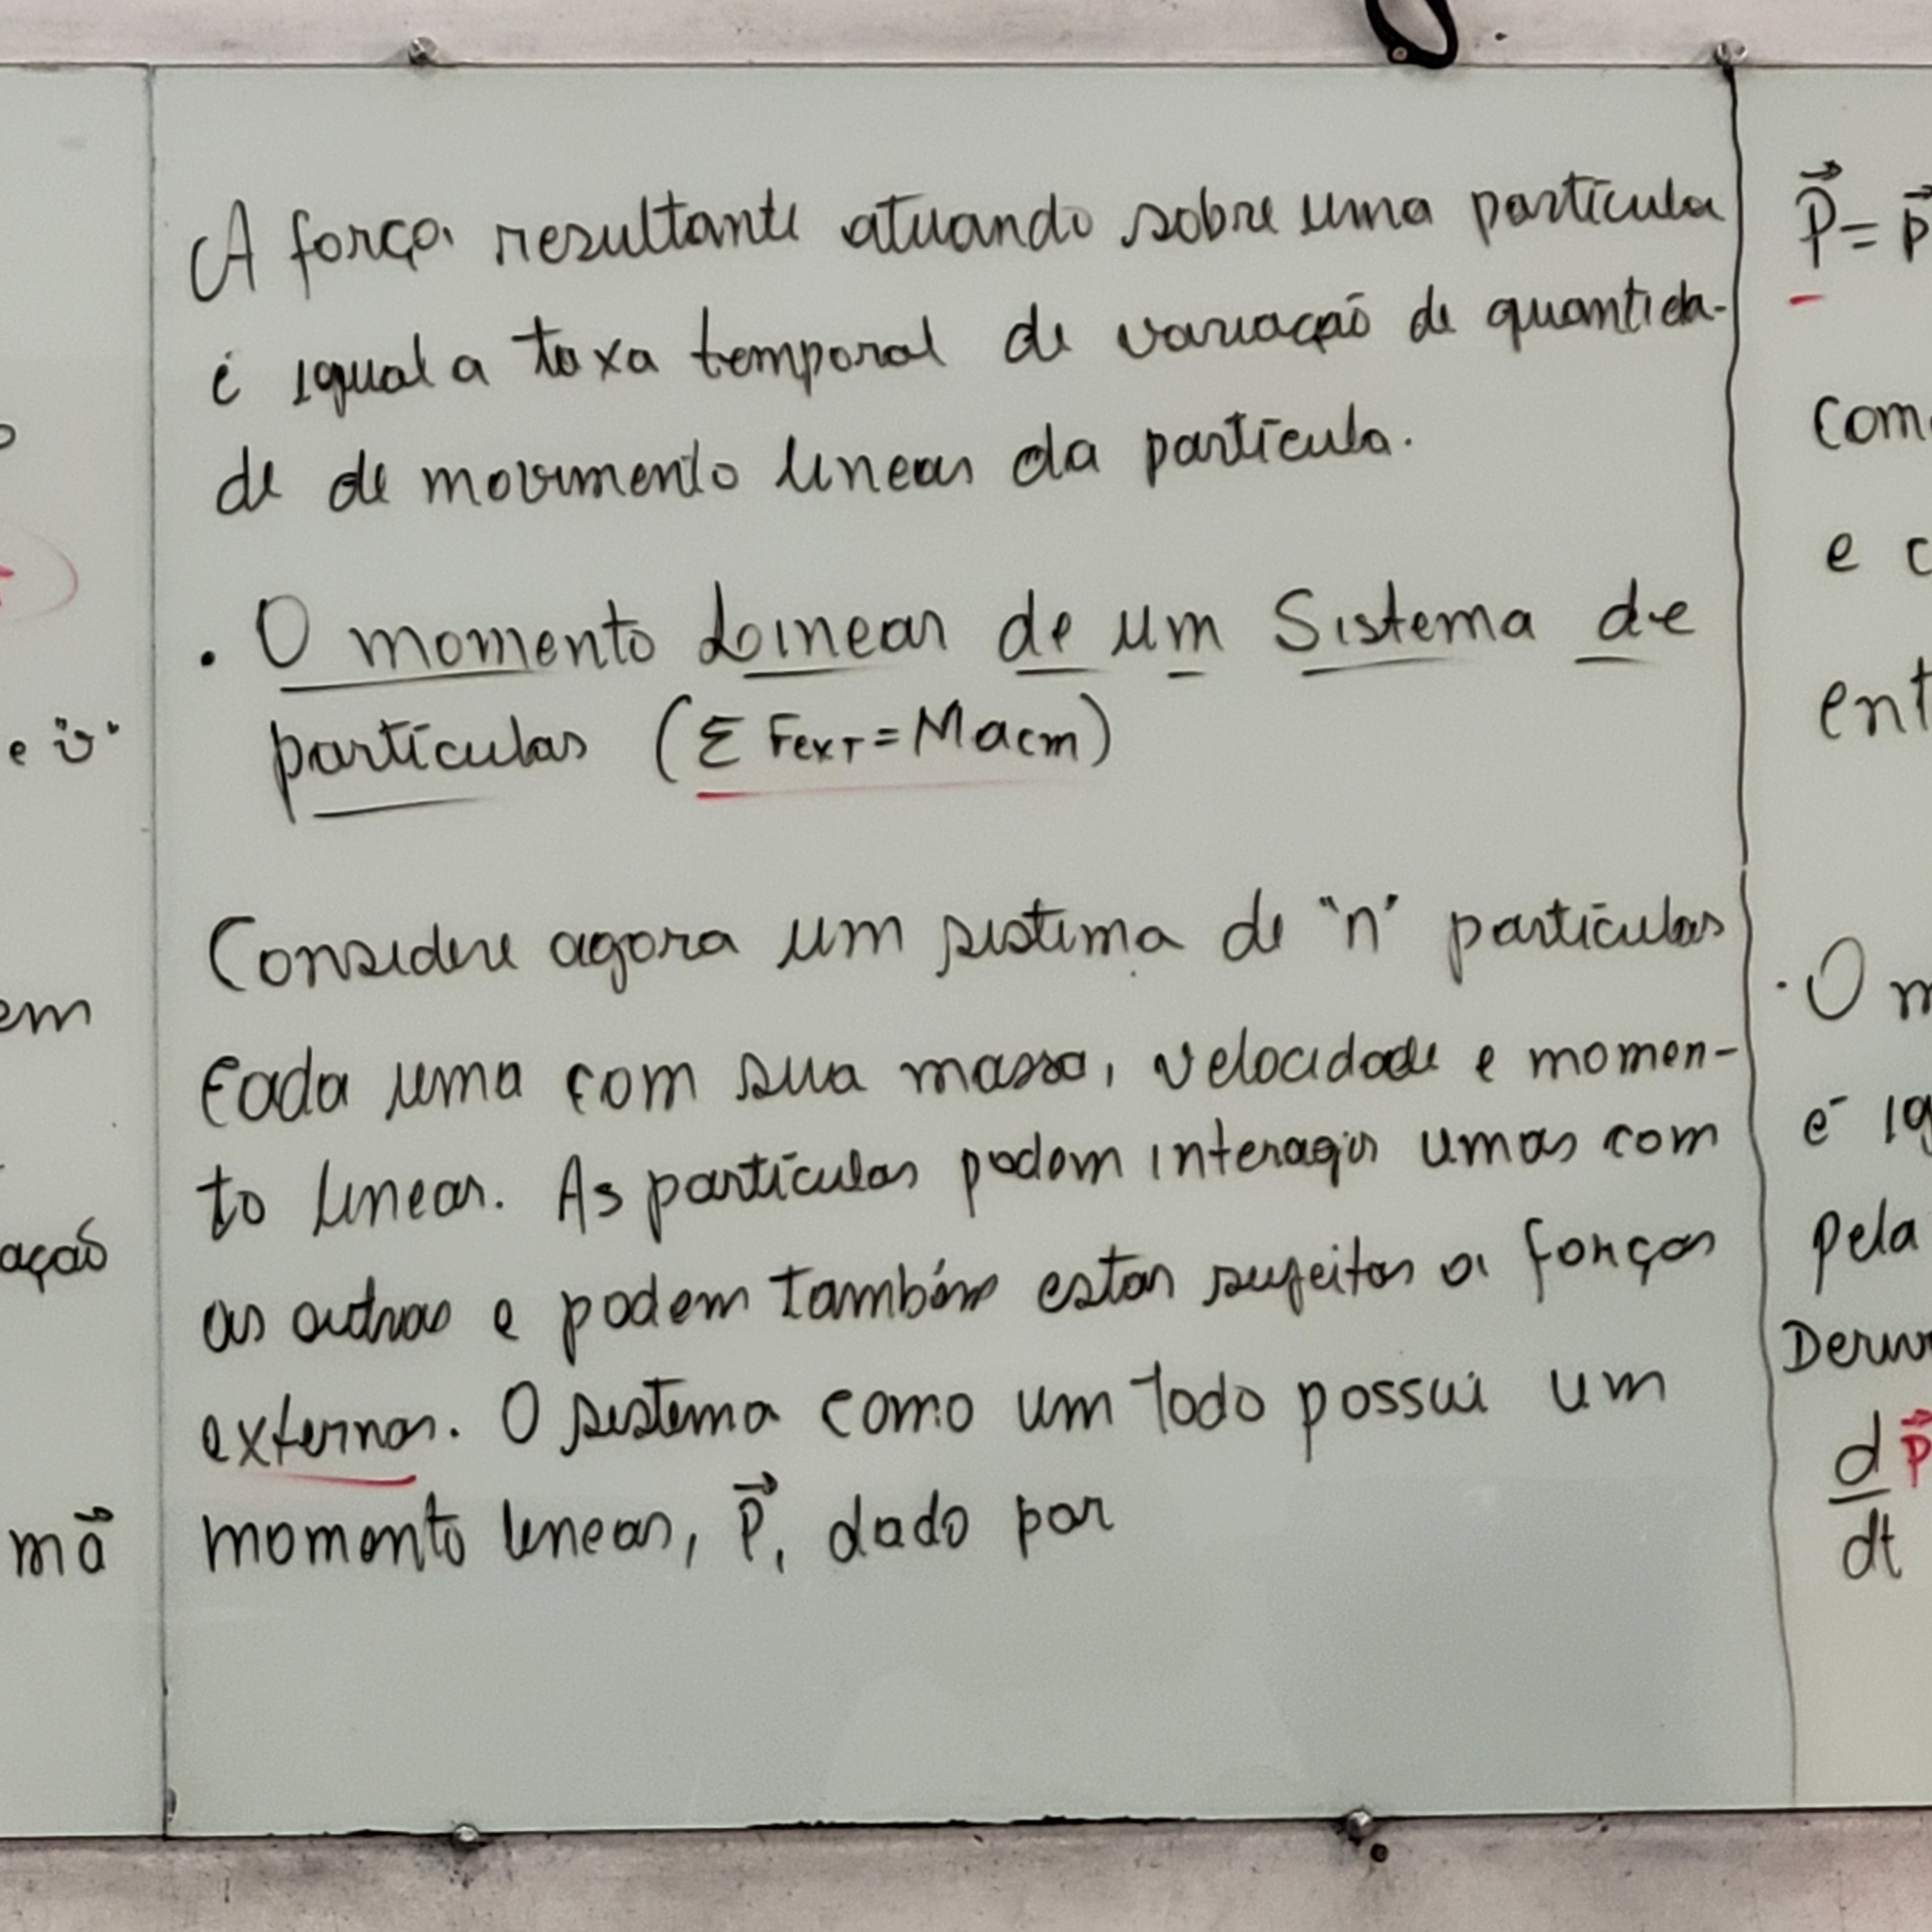 A força resultante atuando sobre uma partícula
é igual a taxa temporal de variação de quantida-
de de movimento linear da partícula.
. O momento Linear de um Sistema de
partículas (Σ Fext = Macm)
Considere agora um sistema de "n" partículas
Cada uma com sua massa, velocidade e momen-
to linear. As partículas podem interagir umas com
as outras e podem também estar sujeitas a forças
externas. O sistema como um Todo possui um
momento linear, P⃗, dado por
e "v"
em
ação
ma⃗
P⃗ = p⃗
com
e c
ent
. O m
é ig
pela
Deriv
d p⃗
dt